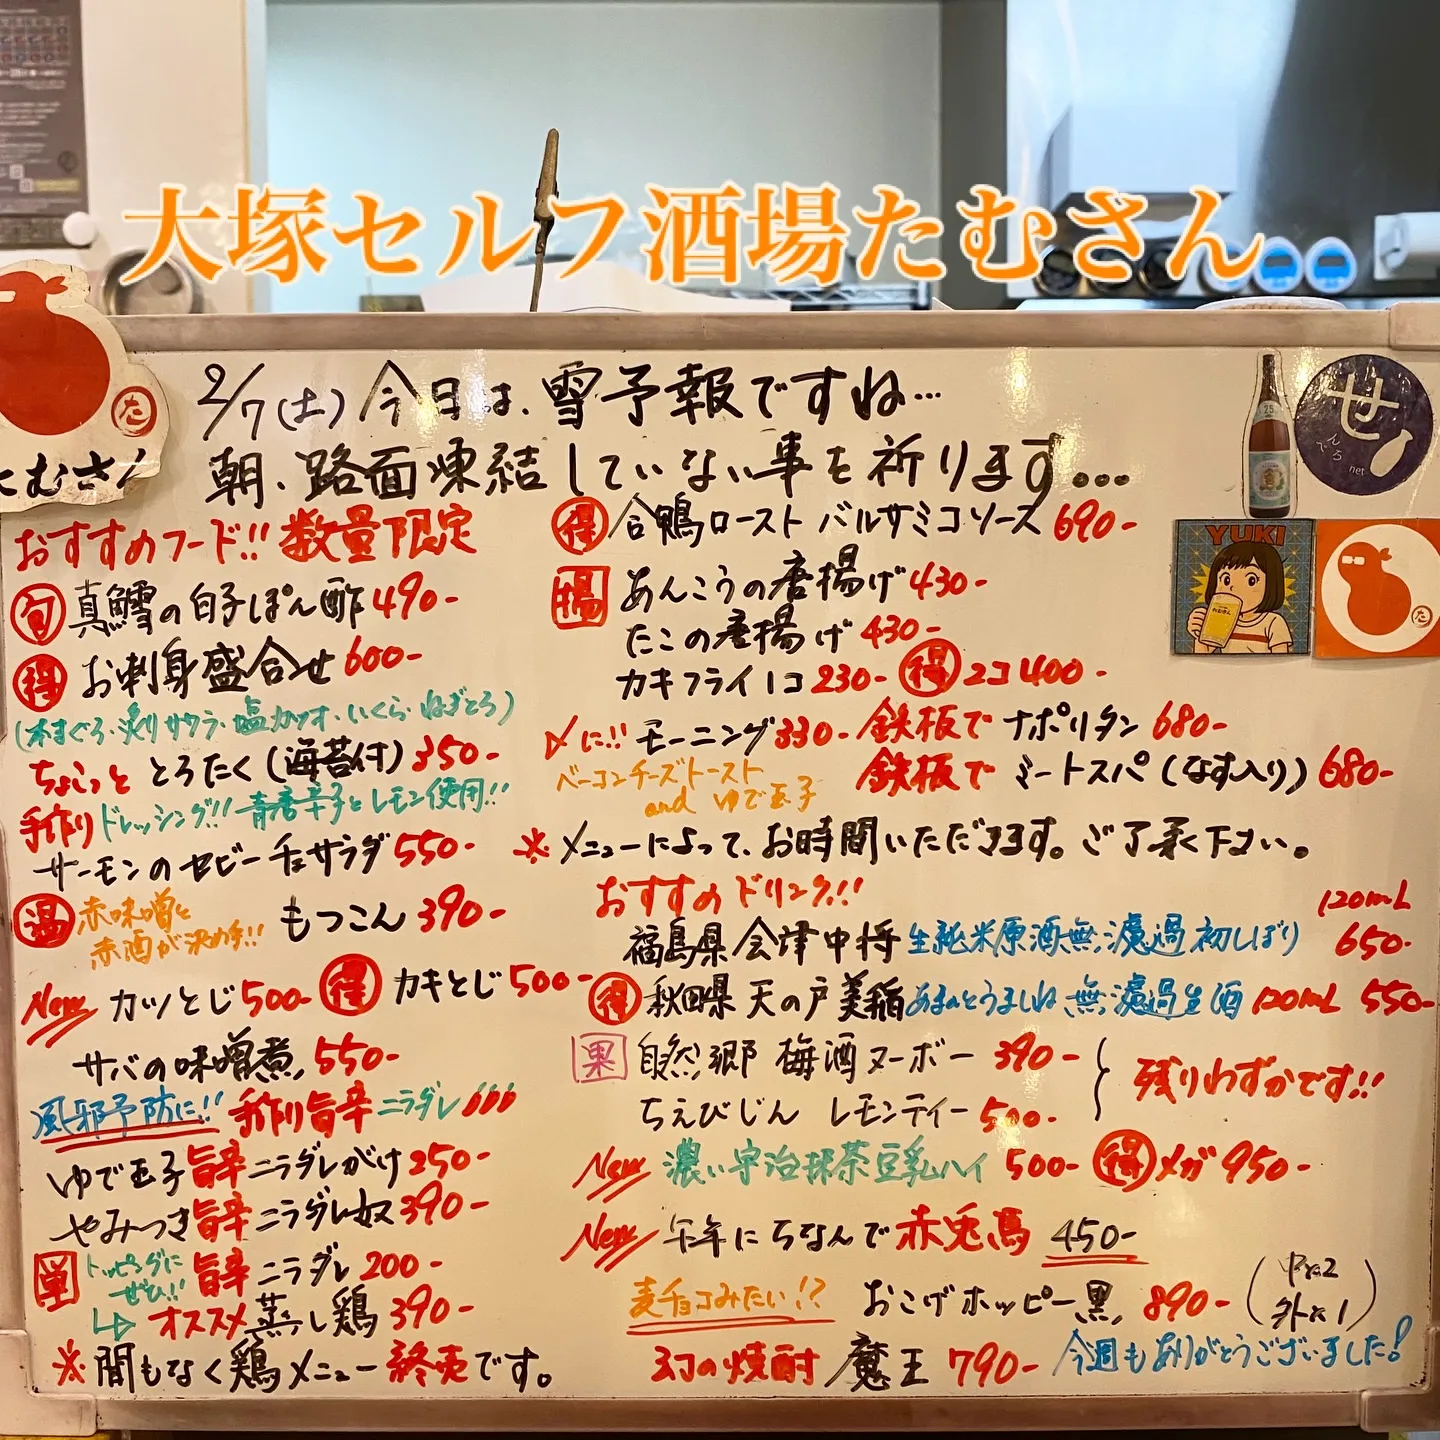 大塚セルフ酒場たむさん
2/7(土)今日は、雪予報ですね…
朝、路面凍結していない事を祈ります…
おすすめフード!! 数量限定
旬 真鱈の白子ぽん酢 490-
得 お刺身盛合せ 600-
(本まぐろ・炙りサワラ・塩カツオ・いくら・ねぎとろ)
ちょこっと とろたく(海苔付) 350-
手作りドレッシング!! 青唐辛子とレモン使用!!
サーモンのセビーチェサラダ 550-
温 赤味噌と
赤酒が決め手!! もつこん 390-
New カツとじ 500- 得 カキとじ 500-
サバの味噌煮 550-
風邪予防に!! 手作り旨辛ニラダレ 666
ゆで玉子旨辛ニラダレがけ 250-
やみつき旨辛ニラダレ奴 390-
単 トッピングに
ぜひ!! 旨辛ニラダレ 200-
オススメ蒸し鶏 390-
※間もなく鶏メニュー終売です。
得 合鴨ロースト バルサミコソース 690-
揚 あんこうの唐揚げ 430-
たこの唐揚げ 430-
カキフライ1コ 230- 得 2コ400-
〆に!! モーニング 330-
ベーコンチーズトースト
and ゆで玉子
鉄板で ナポリタン 680-
鉄板で ミートスパ(なす入り) 680-
※メニューによって、お時間いただきます。ご了承下さい。
おすすめドリンク!!
120mL
福島県 会津中将 生純米原酒無濾過初しぼり 650-
得 秋田県 天の戸 美稲 あまのとうましね 無濾過生酒 120mL 550-
果 自然郷 梅酒ヌーボー 390-
ちえびじん レモンティー 500-
残りわずかです!!
New 濃い宇治抹茶豆乳ハイ 500- 得 メガ 950-
New 午年にちなんで赤兎馬 450-
麦チョコみたい!? おこげホッピー黒 890- (中×2
外×1)
幻の焼酎 魔王 790-
今週もありがとうございました!
たむさん
た
せ
んべろ
net
YUKI
25
た